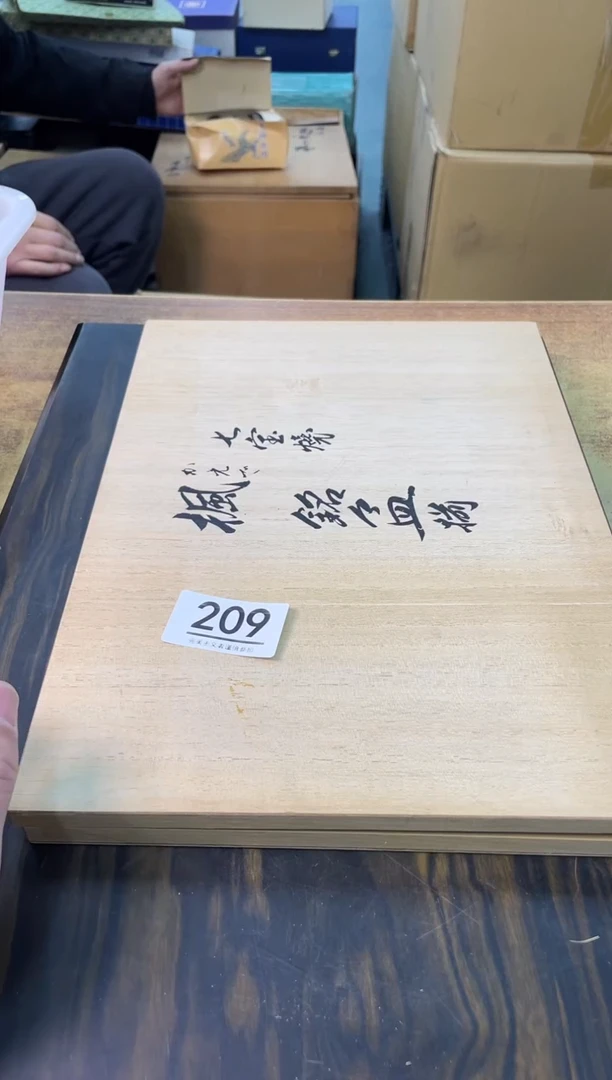 七宝燒
かえで
楓 銘々皿 揃
209